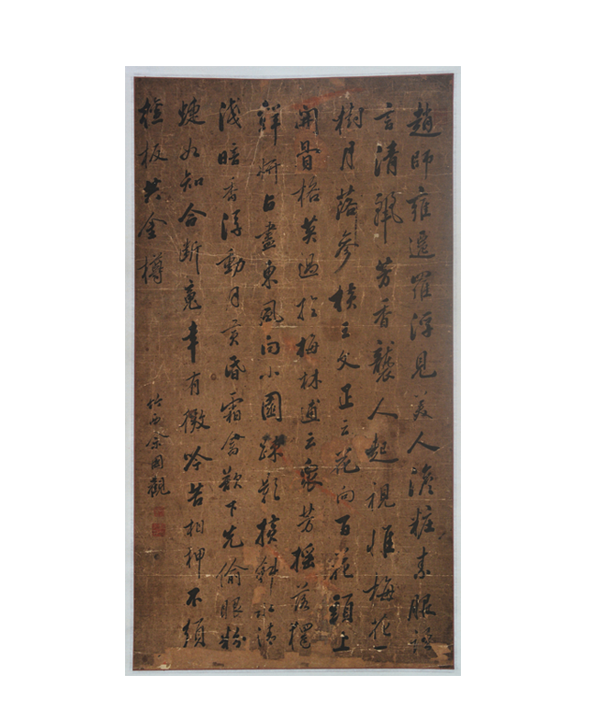 趙師雄遷羅浮見美人澹粧素服語
言清飄芳香襲人起視惟梅花一
樹月落參橫王文正云花向百花頭上
開骨格莫過於梅林逋云衆芳搖落獨
鮮妍占盡東風向小園疎影橫斜水清
淺暗香浮動月黃昏霜禽欲下先偷眼粉
蝶如知合斷䰟幸有微吟苦相狎不須
檀板共金樽
佺西余國觀